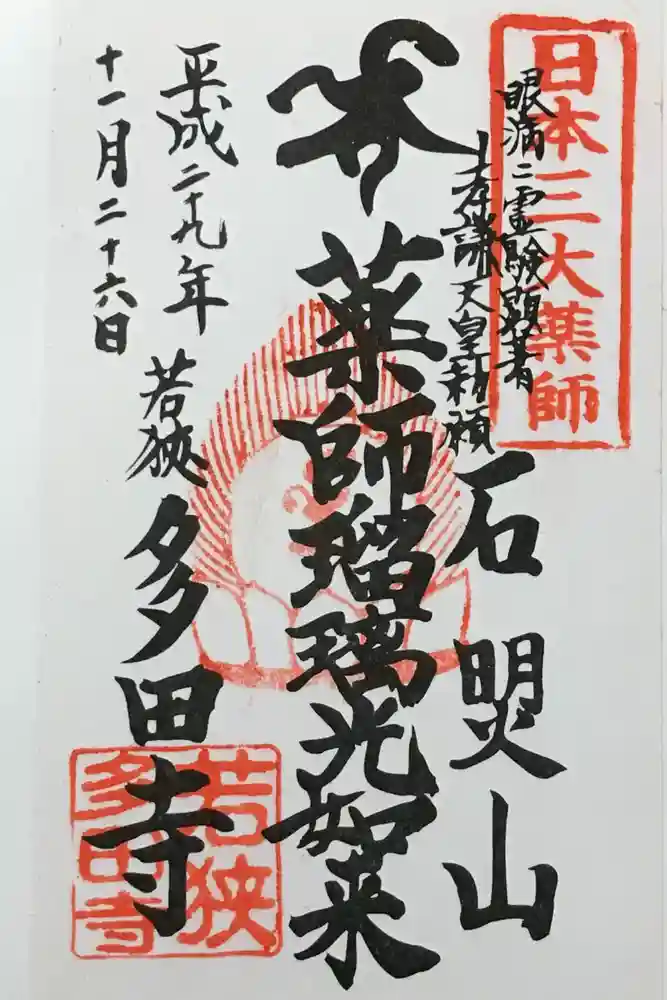 日本三大薬師
眼病ニ霊験顕著
孝謙天皇勅願
石照山
薬師瑠璃光如来
若狭
多田寺
平成二十九年
十一月二十六日
若狭
多田寺